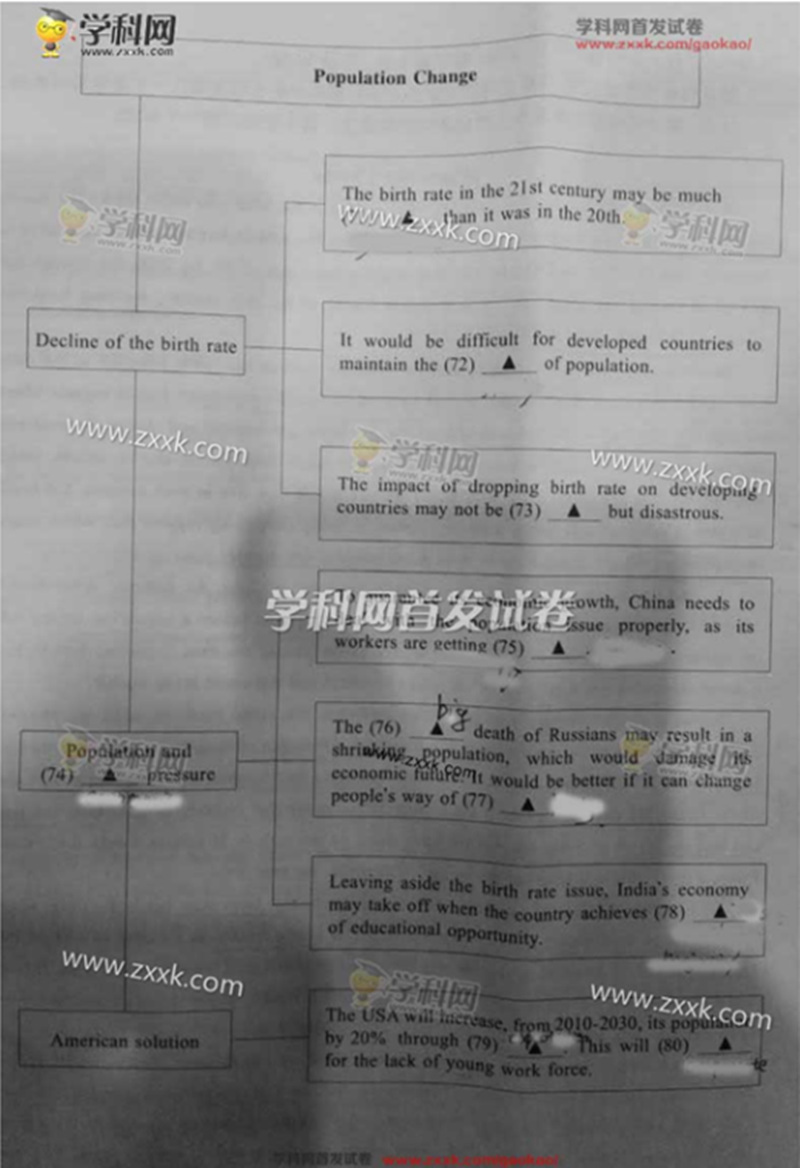 学科网
www.zxxk.com
学科网首发试卷
www.zxxk.com/gaokao/
Population Change
The birth rate in the 21st century may be much
▲ than it was in the 20th.
www.zxxk.com
学科网
www.zxxk.com
学科网
www.zxxk.com
Decline of the birth rate
It would be difficult for developed countries to
maintain the (72) ▲ of population.
www.zxxk.com
学科网
www.zxxk.com
www.zxxk.com
The impact of dropping birth rate on developing
countries may not be (73) ▲ but disastrous.
学科网首发试卷
growth, China needs to
issue properly, as its
workers are getting (75) ▲ .
big
The (76) ▲ death of Russians may result in a
shrinking population, which would damage its
economic future. It would be better if it can change
people's way of (77) ▲
www.zxxk.com
学科网
学科网
Population and
(74) ▲ pressure
Leaving aside the birth rate issue, India's economy
may take off when the country achieves (78) ▲
of educational opportunity.
www.zxxk.com
学科网
www.zxxk.com
www.zxxk.com
American solution
The USA will increase, from 2010-2030, its
by 20% through (79) ▲ . This will (80) ▲
for the lack of young work force.
学科网首发试卷 www.zxxk.com/gaokao/